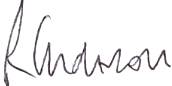 R Anderson